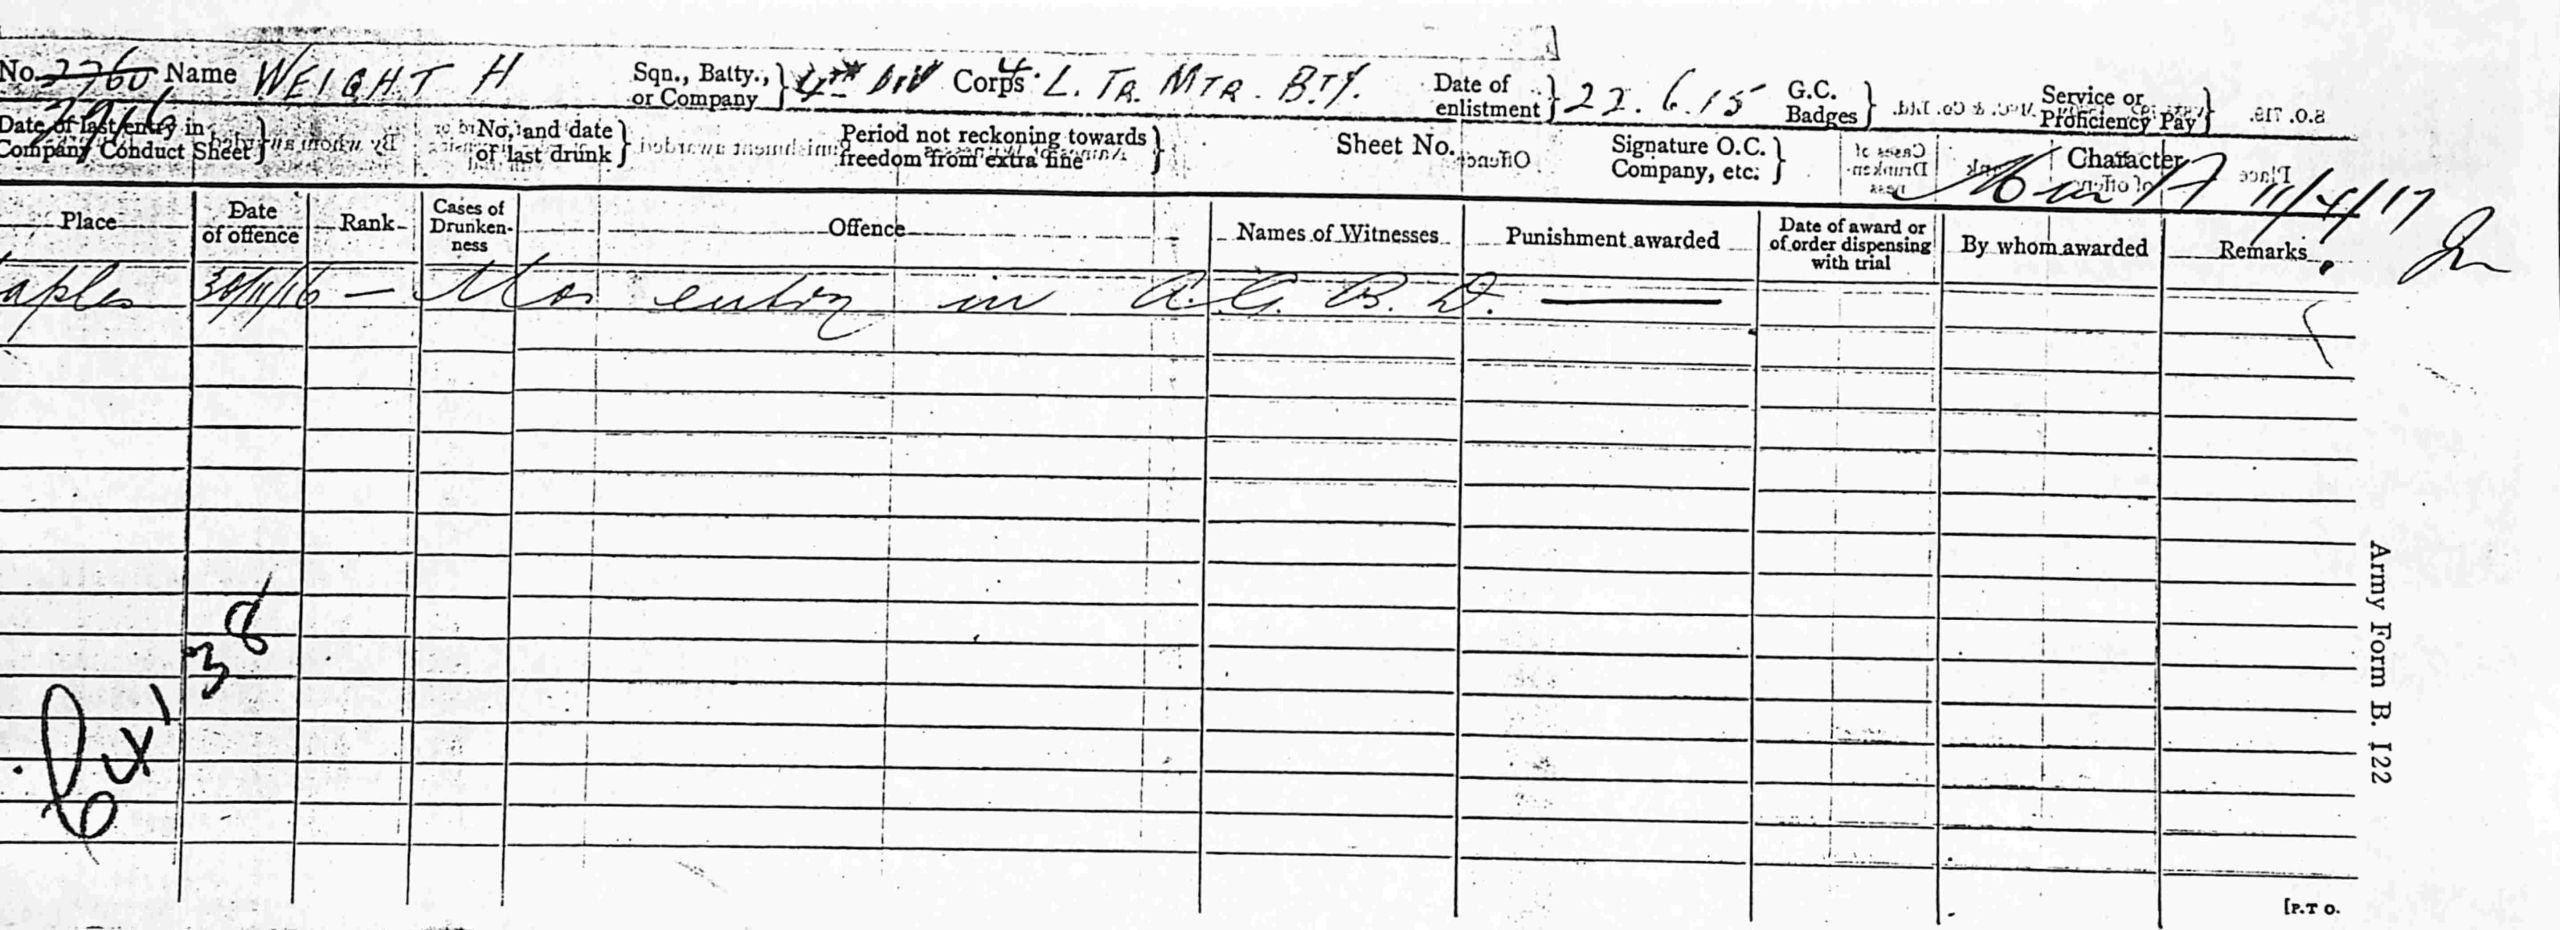 No. 2760 Name WEIGHT H Sqn., Batty., or Company } 4th Div Corps 4 L. TR. MTR. BTY. Date of enlistment } 22.6.15 G.C. Badges } Service or Proficiency Pay } S.O. 718.
2916
Date of last entry in Company Conduct Sheet } No. and date of last drunk } Period not reckoning towards freedom from extra fine } Sheet No. Signature O.C. Company, etc. } Character
11/4/17
Place Date of offence Rank Cases of Drunken-ness Offence Names of Witnesses Punishment awarded Date of award or of order dispensing with trial By whom awarded Remarks
taples 30/11/16 — entry in A.G.B.D. —
38
Army Form B. 122
[P.T O.